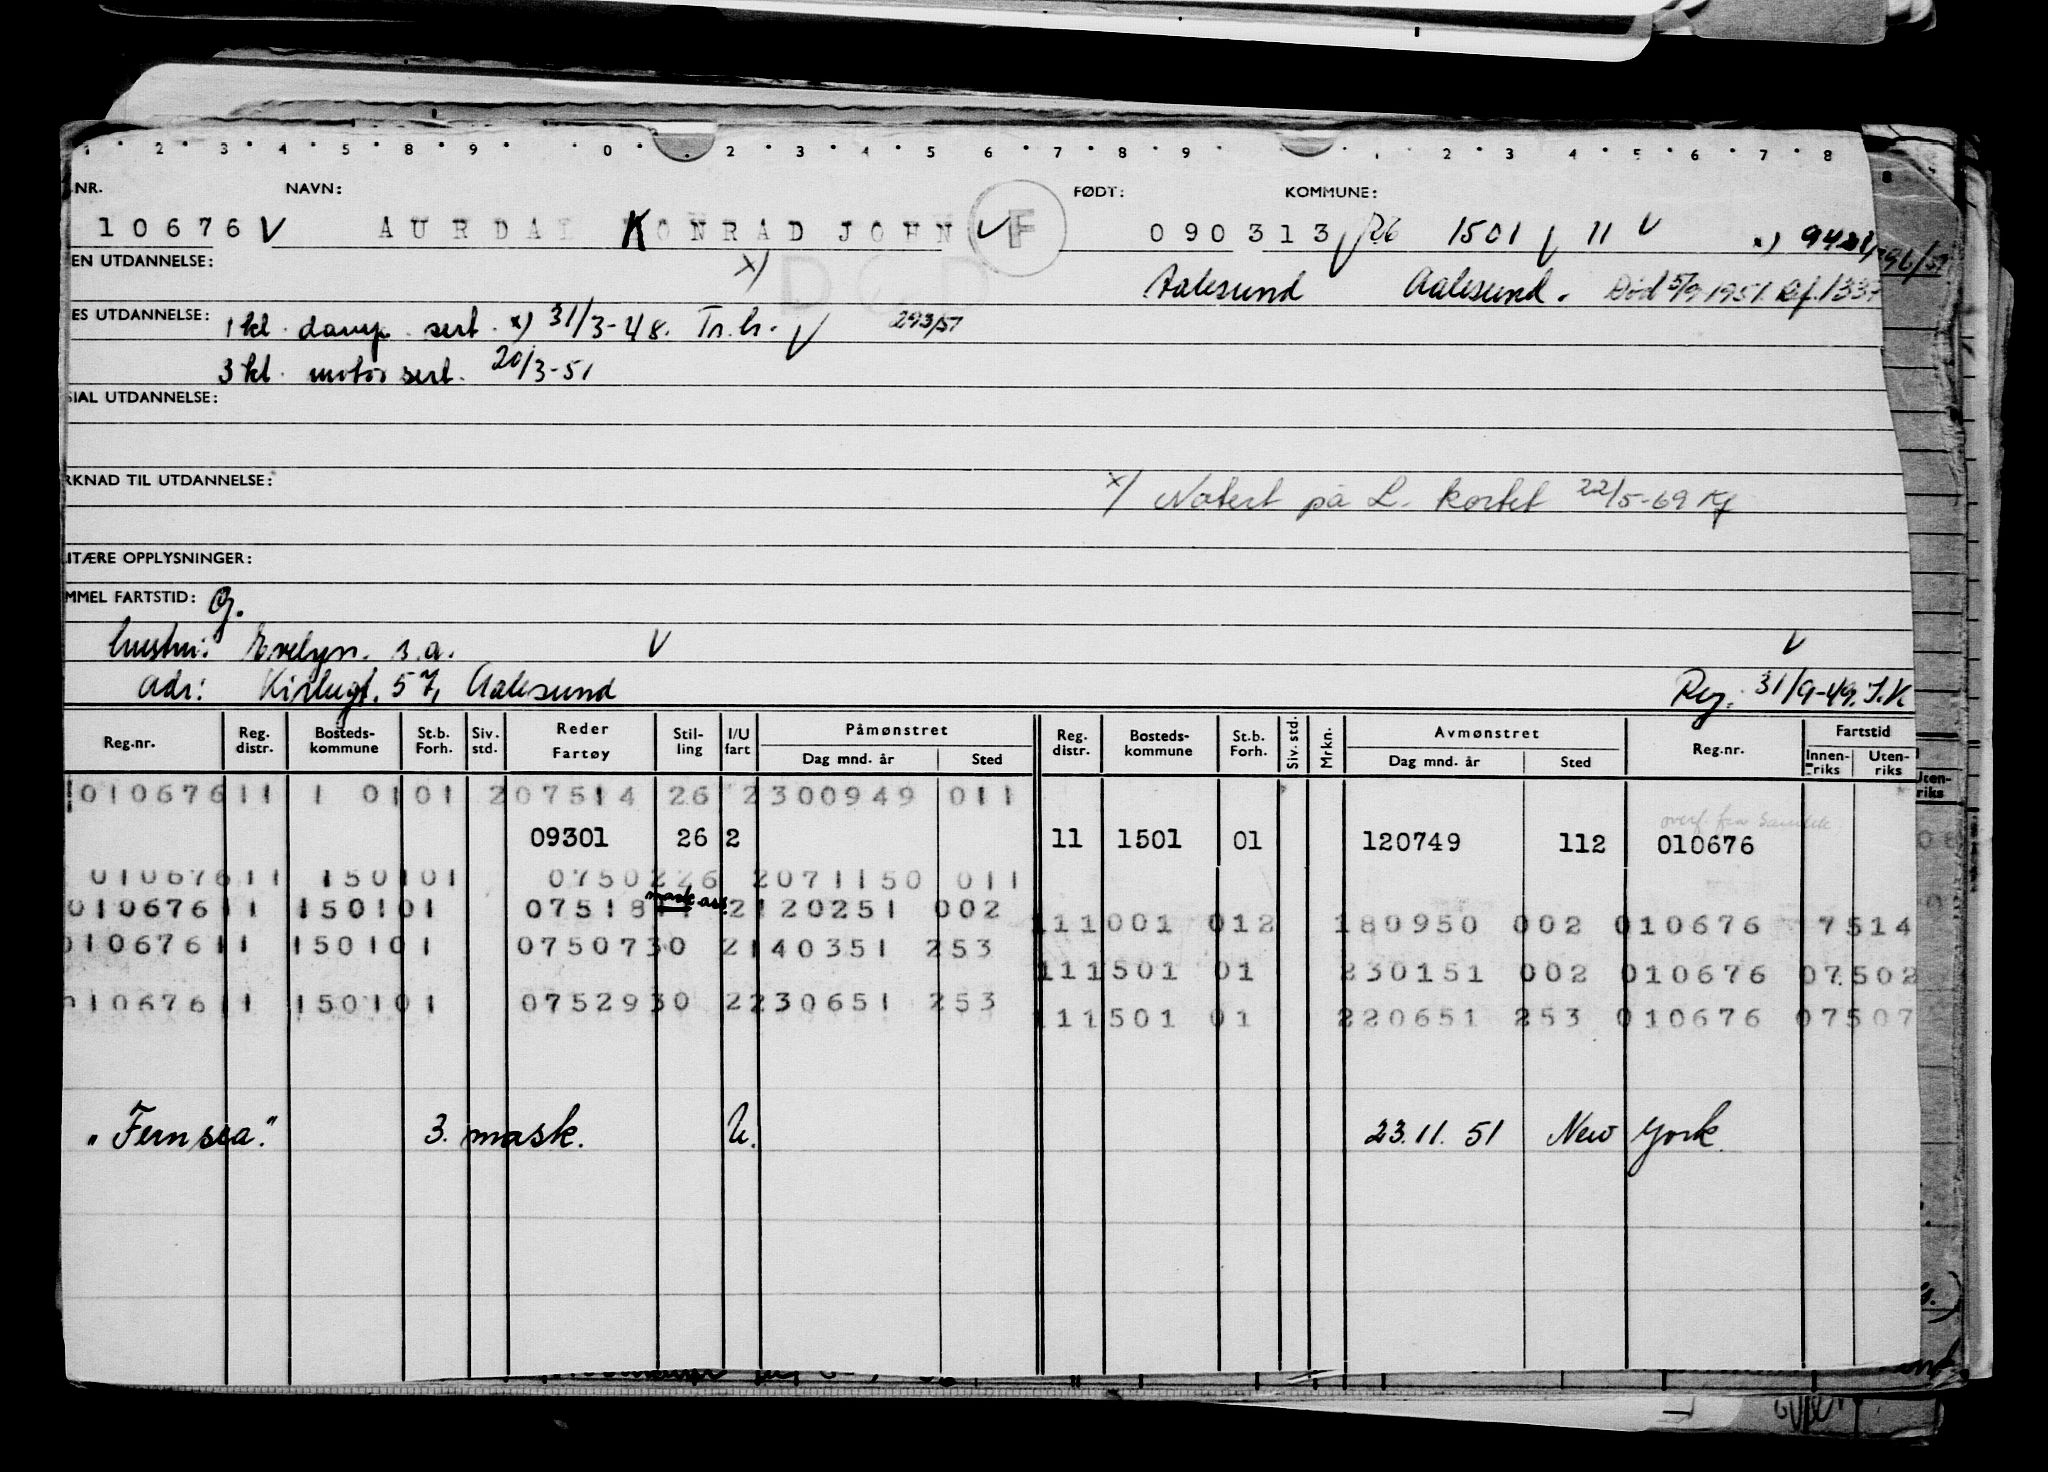 1 · 2 · 3 · 4 · 5 · 8 · 9 · 0 · 2 · 3 · 4 · 5 · 6 · 7 · 8 · 9 · 1 · 2 · 3 · 4 · 5 · 6 · 7 · 8
NR. NAVN: FØDT: KOMMUNE:
10676 V AURDAL KONRAD JOHN V F 090313 1501 11 V x)
EN UTDANNELSE: x) DØD Aalesund Aalesund. Død 5/9 1951. Rf. 1337
ES UTDANNELSE: 1 kl. damp sert. x) 31/3-48. Tr.h. V 293/51
3 kl. motor sert. 20/3-51
SIAL UTDANNELSE:
RKNAD TIL UTDANNELSE: x) Notert på L. kortet 22/5-69 Kf
ITÆRE OPPLYSNINGER:
MMEL FARTSTID: G.
hustru: Evelyn. s.a. V V
adr: Kirkegt. 57, Aalesund Reg. 31/9-49. J.K
Reg.nr. Reg. distr. Bosteds-kommune St.b. Forh. Siv. std. Reder Fartøy Stil-ling I/U fart Påmønstret Dag mnd. år Sted Reg. distr. Bosteds-kommune St.b. Forh. Siv. std. Mrkn. Avmønstret Dag mnd. år Sted Reg.nr. Fartstid Innen-riks Uten-riks
010676 11 1 0101 2 07514 26 2 300949 011
overf. fra
09301 26 2 11 1501 01 120749 112 010676
010676 11 1501 01 07502 26 2 071150 011
mask ass.
010676 11 1501 01 07518 2 120251 002 11 1001 012 180950 002 010676 7514
010676 11 1501 01 07507 30 2 140351 253 11 1501 01 230151 002 010676 07502
010676 11 1501 01 07529 30 2 230651 253 11 1501 01 220651 253 010676 07507
"Fernsea". 3. mask. U. 23.11.51 New York.